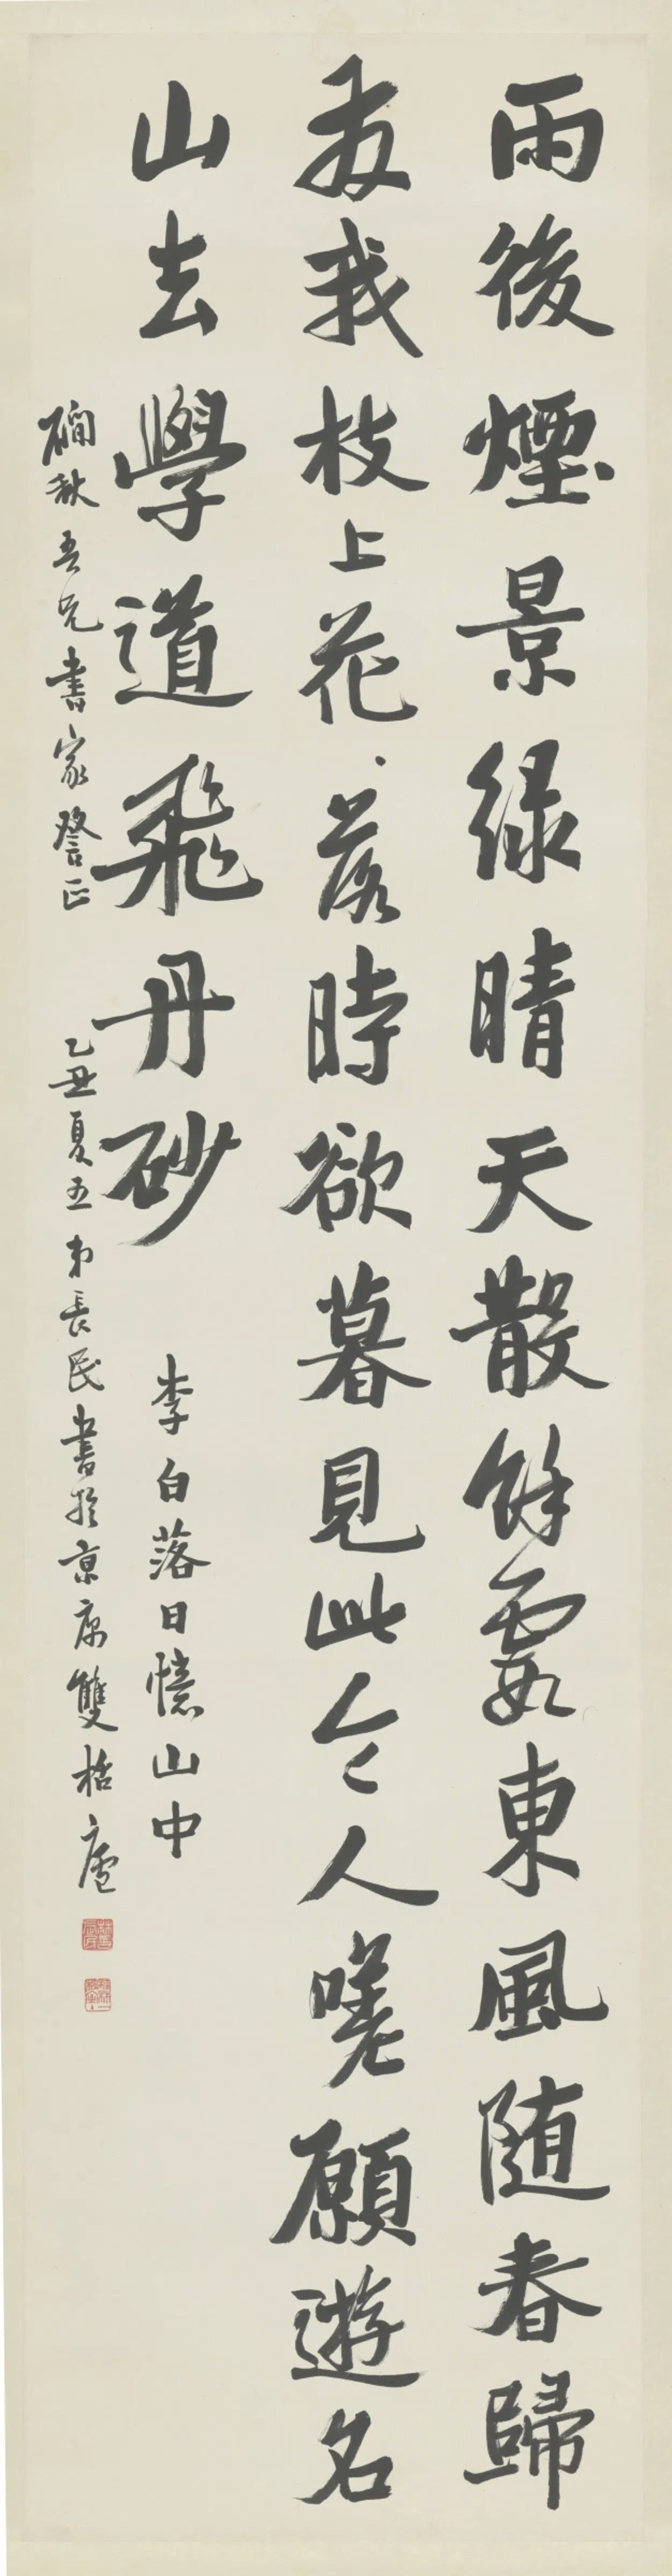 雨後煙景綠晴天散餘霞東風隨春歸
發我枝上花落時欲暮見此令人嗟願遊名
山去學道飛丹砂
李白落日憶山中
磵秋吾兄書家詧正
乙丑夏五弟長民書於京寓雙栝廬